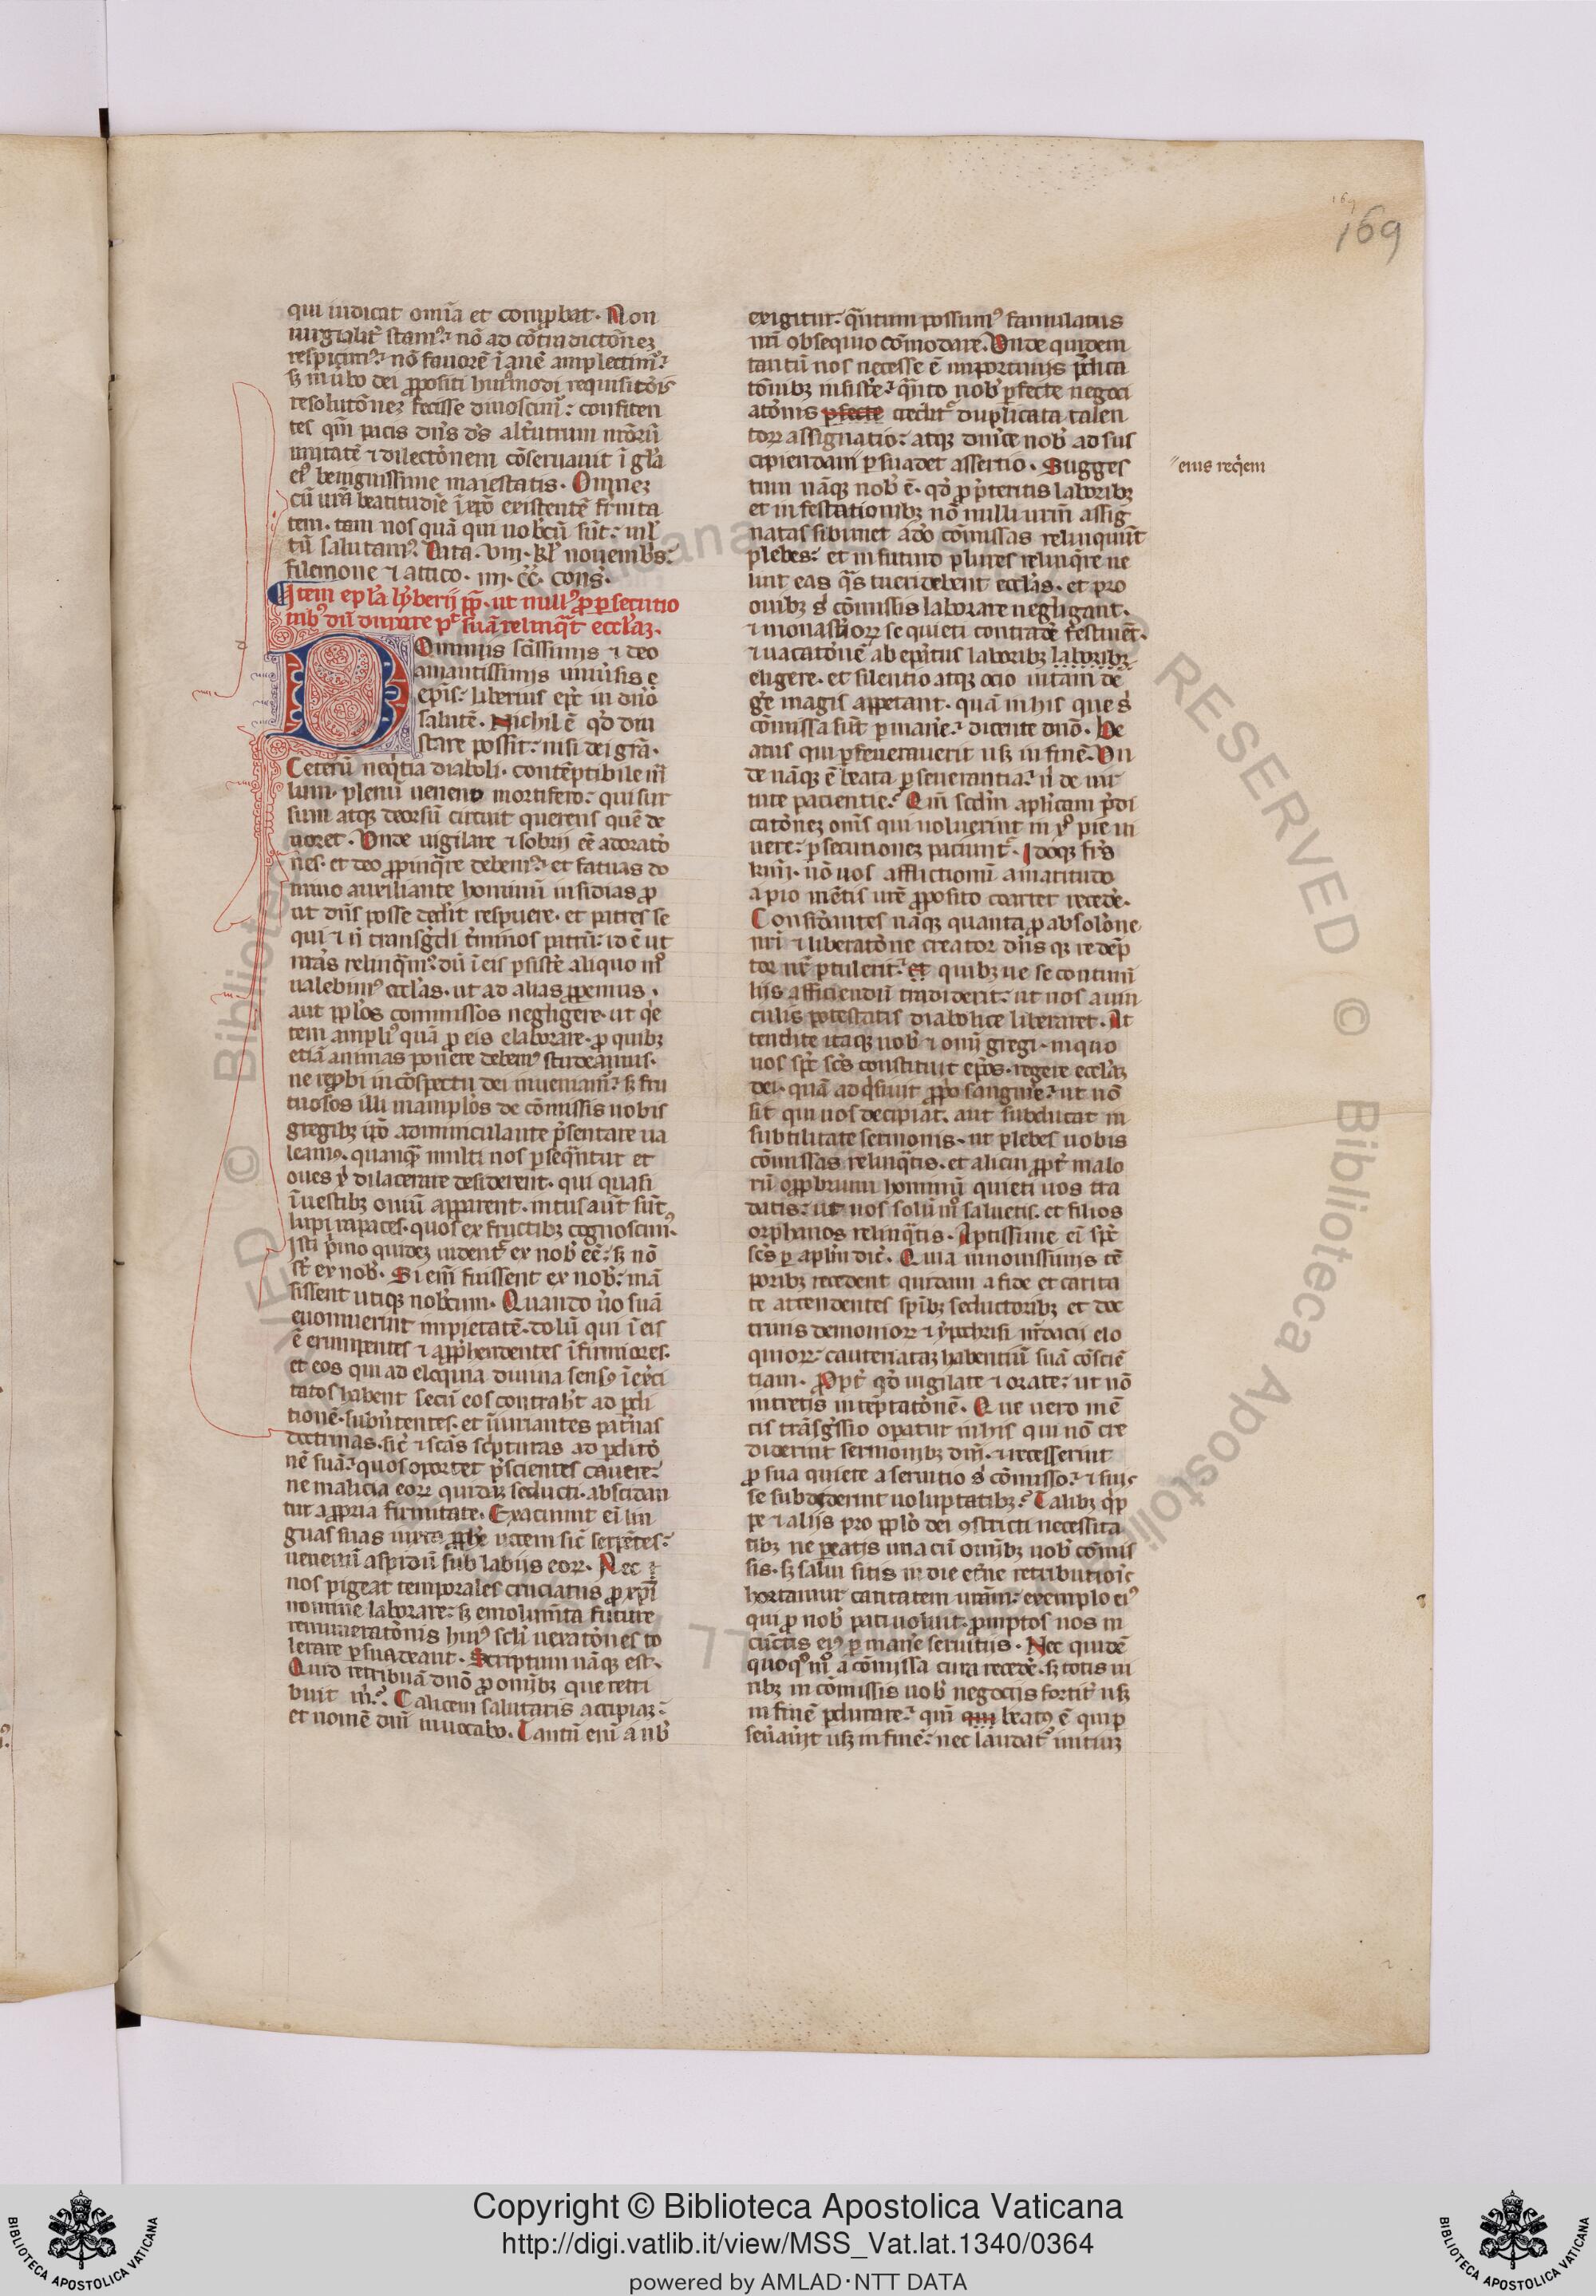 169
qui iudicat om̄ia et comꝓbat. Non
uirgialit̄ stamꝰ. nō ad cōtradictōnez
respicimꝰ. nō fauorē īanē amplectimꝰ.
sꝫ in ūbo dei ꝓpositi huiꝰmodi requisitōis
resolutōnez fecisse dinoscimꝰ. confiten
tes qm̄ pacis dn̄s d̄s alt̄utrum nrōrū
unitatē ⁊ dilectōnem cōseruauit ī gl̄a
eiꝰ benignissime maiestatis. Omnez
cū urā beatitudīe ī xp̄o existentē frnita
tem. tam nos quā qui nobcū sūt. ml̄
tū salutamꝰ. Data. viii. kl̓ nouembs̄.
filemone ⁊ attico. iiii. cc̄. cons̄.
Item epl̄a lyberij pp̄. ut nullꝰ ꝓ ꝑsecutio
nibꝰ dū durare pt̄ suā relinqt̄ eccl̄az.
Ominis sc̄issimis ⁊ deo
amantissimis uniūsis e
ep̄is. liberius ep̄c in dn̄o
salutē. Nichil ē qd̓ diu
stare possit. nisi dei grā.
Ceterū neqtia diaboli. contēptibile m̄
lum. plenū ueneno mortifero. qui sur
sum atqꝫ deorsū circuit querens quē de
uoret. Unde uigilare ⁊ sobrij eē adorato
nes. et deo ꝓpinqre debemꝰ. et fatuas do
mino auxiliante hominū insidias ꝓ
ut dn̄s posse dedit respuere. et patres se
qui ⁊ n̄ transgredi t̄minos patrū. id ē ut
nrās relinqmꝰ. dū ī eis ꝑsistē aliquo mō
ualebimꝰ eccl̄as. ut ad alias ꝓꝑemus.
aut ppl̄os commissos negligere. ut qe
tem ampliꝰ quā ꝓ eis elaborare. ꝓ quibꝫ
etiā animas ponere debemꝰ studeamus.
ne reꝓbi in cōspectu dei inueniamꝰ. sꝫ fru
tuosos illi manipl̄os de cōmissis nobis
gregibꝫ xp̄o adminiculante p̄sentare ua
leamꝰ. quanqꝫ multi nos ꝑseqntur et
oues xp̄i dilacerare desiderent. qui quasi
ī uestibꝫ ouiū apparent. intus aūt sūt
lupi rapaces. quos ex fructibꝫ cognoscimꝰ.
Isti p̄mo quidez uident̄ ex nob̄ eē. sꝫ nō
st̄ ex nob̄. Si em̄ fuissent ex nob̄. mā
sissent utiqꝫ nobcum. Quando ūo suā
euomuerint impietatē. dolū qui ī eis
ē erumpentes ⁊ apphendentes īfirmiores.
et eos qui ad eloquia diuina sensꝰ īexci
tatos habent secū eos contrahūt ad pdi
tionē. subūtentes. et iniuriantes pat̄nas
doctrinas. sic̄ ⁊ scās sc̄pturas ad pditō
nē suā. quos oportet p̄scientes cauere.
ne malicia eorꝝ quidaꝫ seducti. abscidan
tur a ꝓpria firmitate. Exacuunt eī lin
guas suas iuxta ꝓph̄e uocem sic̄ serpētes.
uenenū aspidū sub labijs eorꝝ. Nec
nos pigeat temporales cruciatus ꝓ xp̄i
nomine laborare. sꝫ emolumta future
remuneratōnis huiꝰ scl̄i ueratōnes to
lerare ꝑsuadeant. Scriptum nāqꝫ est.
Quid retribuā dnō ꝓ om̄ibꝫ que retri
buit m̄. Calicem salutaris accipiaꝫ.
et nomē dn̄i inuocabo. Tantū enī a nb̄
exigitur. qntum possumꝰ famulatus
nr̄i obsequio cōmodare. Unde quidem
tantū nos necesse ē importunis p̄dica
tōnibꝫ insistē. qnto nob̄ ꝑfecte negoci
atōnis ꝑfecte credit̄ duplicata talen
torꝝ assignatio. atqꝫ diuīe nob̄ ad sus
cipiendam ꝑsuadet assertio. Sugges
tum nāqꝫ nob̄ ē. qd̓ ꝓ p̄teritis laboribꝫ
et infestationibꝫ nō nulli urm̄ assig
natas sibimet a dō cōmissas relinquūt
plebes. et in futuro plures relinqre ue
lint eas qs̄ tueri debent eccl̄as. et pro
ouibꝫ s̄ cōmissis laborare negligant.
⁊ monast̄iorꝝ se quieti contradē festinēt.
⁊ uacatōnē ab ep̄itus laboribꝫ laboribꝫ
eligere. et silentio atqꝫ ocio uitam de
gē magis appetant. quā in his que s̄
cōmissa sūt ꝑmanē. dicente dnō. Be
atus qui ꝑseuerauerit usꝫ in finē. Un
de nāqꝫ ē beata ꝑseuerantia. n̄ de uir
tute pacientie. Qm̄ scdm̄ apl̄icam p̄di
catōnez om̄s qui uoluerint in xp̄o pie ui
uere. ꝑsecutionez paciunt̄. Idoqꝫ frs̄
kmi. nō uos afflictionū amaritudo
a pio mētis urē ꝓposito coartet recedē.
Consid̄antes nāqꝫ quanta ꝓ absolōne
nr̄i ⁊ liberatōne creator dn̄s qꝫ redēp
tor nr̄ ptulerit. et quibꝫ ue se contum̄
liis afficiendū tradiderit. ut nos a uin
culis potestatis diabolice liberaret. At
tendite itaqꝫ uob̄ ⁊ om̄i gregi. in quo
uos sp̄c sc̄s constituit ep̄os. regere eccl̄aꝫ
dei. quā adqsiuit ꝓpo sanguie. ut nō
sit qui uos decipiat. aut subducat in
subtilitate sermonis. ut plebes uobis
cōmissas relinqtis. et alicui ꝓpt̄ malo
rū oppbrium hominū quieti uos tra
datis. ut uos solū mō saluetis. et filios
orphanos relinqtis. Aptissime eī sp̄c
sc̄s ꝑ apl̄m dic̄. Quia in nouissimis tē
poribꝫ recedent quidam a fide et carita
te attendentes spībꝫ seductoribꝫ et doc
trinis demoniorꝝ ⁊ ypochrisi mēdacii elo
quiorꝝ. cauteriataꝫ habentiū suā cōsciē
tiam. Ꝓpt̄ qd̓ uigilate ⁊ orate. ut nō
intretis in teptatōnem. Que uero mē
tis trāsgssio opatur in his qui nō cre
diderint sermonibꝫ dni. ⁊ recesserint
ꝓ sua quiete a seruitio s̄ cōmisso. ⁊ suis
se subdiderint uoluptatibꝫ. Talibꝫ qp
pe ⁊ alijs pro ppl̄o dei ꝯstricti necessita
tibꝫ ne peatis una cū om̄ibꝫ uob̄ cōmis
sis. sꝫ salui sitis in die et̄ne retributiōis
hortamur caritatem uram. exemplo eiꝰ
qui ꝓ nob̄ pati uoluit. ꝓmptos nos in
cunctis eiꝰ ꝑmanē seruitiis. Nec quidē
quoqꝰ mō a cōmissa cura recedē. sꝫ totis ui
ribꝫ in cōmissis uob̄ negociis fortit̄ usꝫ
in finē pdurare. qm̄ qui beatꝰ ē qui ꝑ
seūauit usꝫ in finē. nec laudat̄ initiuꝫ
eius reqiem
Copyright © Biblioteca Apostolica Vaticana
http://digi.vatlib.it/view/MSS_Vat.lat.1340/0364
powered by AMLAD·NTT DATA
BIBLIOTECA APOSTOLICA VATICANA
BIBLIOTECA APOSTOLICA VATICANA